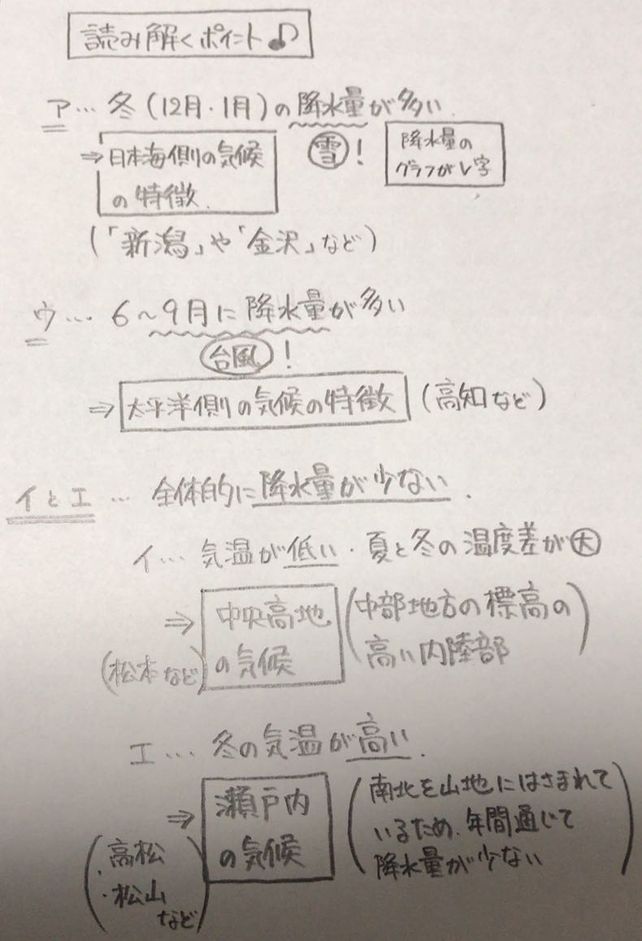 読み解くポイント♪
ア… 冬(12月・1月)の降水量が多い.
⇒日本海側の気候
の特徴.
雪!
降水量の
グラフがV字
(「新潟」や「金沢」など)
ウ… 6〜9月に降水量が多い
台風!
⇒太平洋側の気候の特徴 (高知など)
イとエ… 全体的に降水量が少ない.
イ… 気温が低い・夏と冬の温度差が大
⇒中央高地
の気候
(中部地方の標高の
高い内陸部)
(松本など)
エ… 冬の気温が高い.
⇒瀬戸内
の気候
(南北を山地にはさまれて
いるため、年間通じて
降水量が少ない)
(・高松
・松山
など)